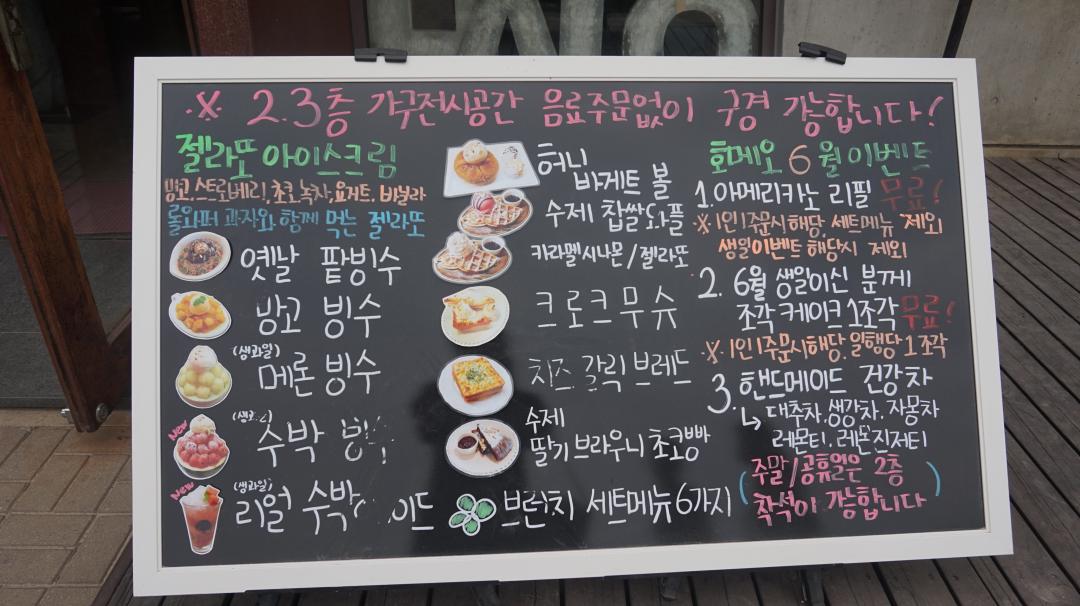 ※ 2.3층 가구전시공간 음료주문없이 구경 가능합니다!
젤라또 아이스크림
망고, 스트로베리, 초코, 녹차, 요거트, 바닐라
롤와퍼 과자와 함께 먹는 젤라또
옛날 팥빙수
망고 빙수
(생과일)
메론 빙수
New
수박
New
(생과일)
리얼 수박
이드
허니
바게트 볼
수제 찹쌀 와플
카라멜시나몬 / 젤라또
크로크무슈
치즈 갈릭 브레드
수제
딸기 브라우니 초코빵
브런치 세트메뉴 6가지
6월 이벤트
1. 아메리카노 리필 무료!
※ 1인 1주문시 해당, 세트메뉴 제외
생일이벤트 해당시 제외
2. 6월 생일이신 분께
조각 케이크 1조각 무료!
※ 1인 1주문시 해당, 일행당 1조각
3. 핸드메이드 건강차
↳ 대추차, 생강차, 자몽차
레몬티, 레몬진저티
(주말/공휴일은 2층
착석이 가능합니다)